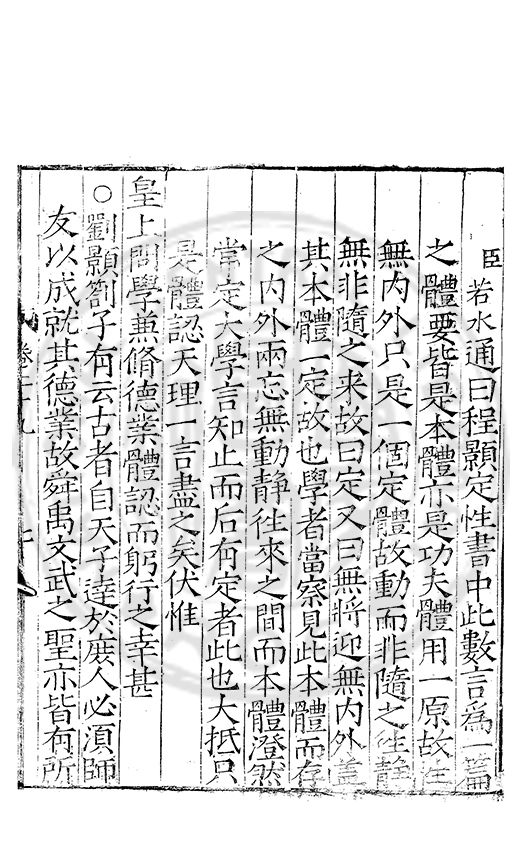 臣若水通曰程顥定性書中此數言為一篇
之體要皆是本體亦是功夫體用一原故性
無內外只是一個定體故動而非隨之往靜
無非隨之来故曰定又曰無將迎無內外蓋
其本體一定故也學者當察見此本體而存
之內外兩忘無動靜徃來之間而本體澄然
常定大學言知止而后有定者此也大抵只
是體認天理一言盡之矣伏惟
皇上問學兼脩德業體認而躬行之幸甚
○劉顥劄子有云古者自天子達於庶人必湏師
友以成就其德業故舜禹文武之聖亦皆有所
卷二十九